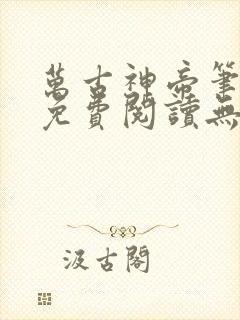 萬古神帝筆
免費閱讀無
汲古閣